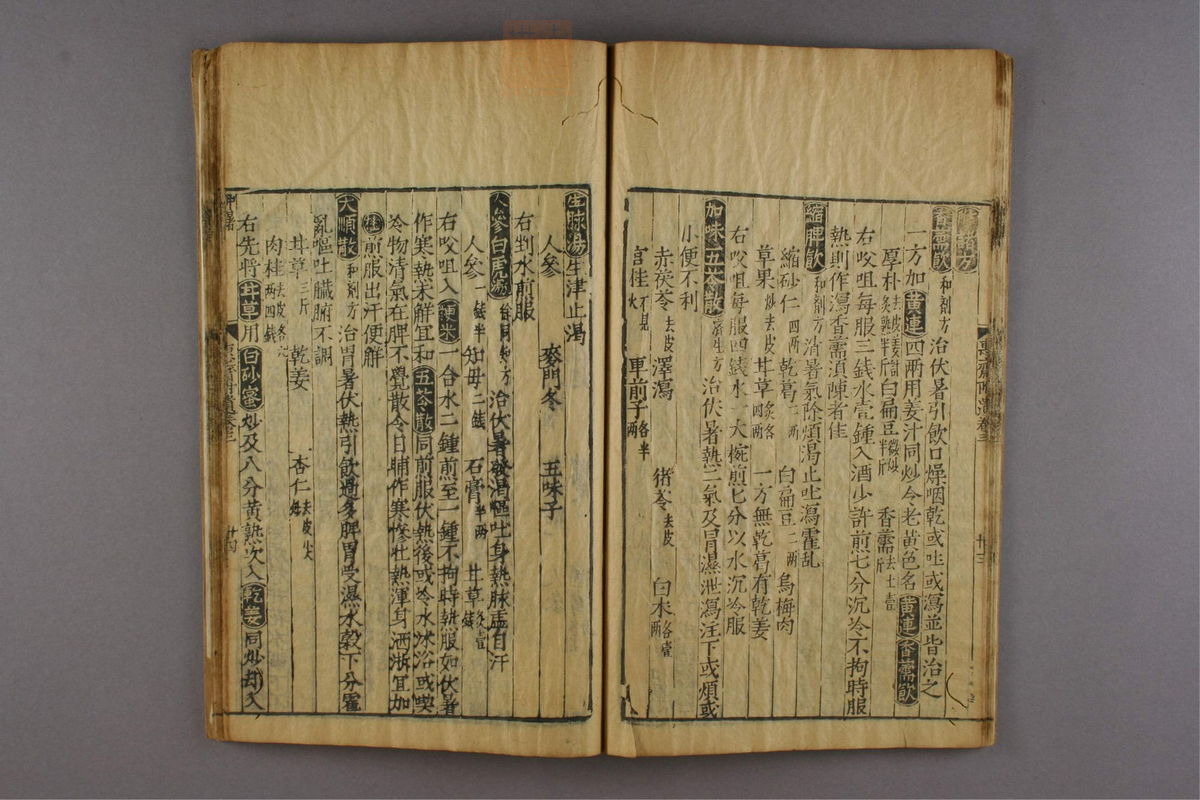 香薷飲 和劑方 治伏暑引飲口燥咽乾或吐或瀉並皆治之
一方加黄連四兩用姜汁同炒令老黄色名黄連香薷飲
厚朴去皮姜製 白扁豆半斤微炒 香薷去土壹斤
右㕮咀每服三錢水壹鍾入酒少許煎七分沉冷不拘時服
熱則作瀉香薷須陳者佳
縮脾飲 和劑方 消暑氣除煩渴止吐瀉霍亂
縮砂仁四兩 乾葛二兩 白扁豆二兩 烏梅肉
草果炒去皮 甘草炙各四兩 一方無乾葛有乾姜
右㕮咀每服四錢水一大椀煎七分以水沉冷服
加味五苓散 濟生方 治伏暑熱二氣及冒濕泄瀉注下或煩或
小便不利
赤茯苓去皮 澤瀉 猪苓去皮 白木各壹兩
官桂不見火 車前子各半兩
生脉湯 生津止渴
人參 麥門冬 五味子
右剉水煎服
人參白虎湯 治伏暑發渴嘔吐身熱脉虚自汗
人參一錢半 知母二錢 石膏半兩 甘草炙壹錢
右㕮咀入粳米一合水二鍾煎至一鍾不拘時熱服如伏暑
作寒熱未解宜和五苓散同煎服伏熱後或冷水沐浴或喫
冷物清氣在脾不覺散令日晡作寒慘壮熱渾身洒淅宜加
桂煎服出汗便解
大順散 和劑方 治胃暑伏熱引飲過多脾胃受濕水穀下分霍
亂嘔吐臓腑不調
甘草三斤 乾姜 杏仁去皮尖炒
肉桂去皮各四兩
右先將甘草用白砂蜜炒及八分黄熟次入乾姜同炒却又